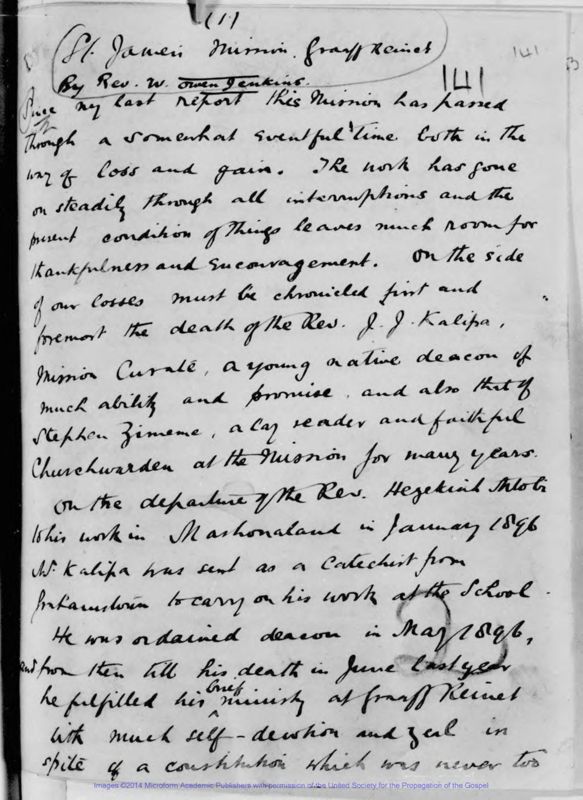 (1)
St. James' Mission. Graaff Reinet
141
By Rev. W. Owen Jenkins.
141
Since my last report this Mission has passed
through a somewhat eventful time both in the
way of loss and gain. The work has gone
on steadily through all interruptions and the
present condition of things leaves much room for
thankfulness and encouragement. On the side
of our losses must be chronicled first and
foremost the death of the Rev. J. J. Kalipa,
Mission Curate, a young native deacon of
much ability and promise, and also that of
Stephen Zimeme, a lay reader and faithful
Churchwarden at the Mission for many years.
On the departure of the Rev. Hezekiah Mtobi
to his work in Mashonaland in January 1896
Mr. Kalipa was sent as a Catechist from
Grahamstown to carry on his work at the School.
He was ordained deacon in May 1896,
and from then till his death in June last year
he fulfilled his brief ministry at Graaff Reinet
with much self-devotion and zeal in
spite of a constitution which was never too
Images ©2014 Microform Academic Publishers with permission of the United Society for the Propagation of the Gospel